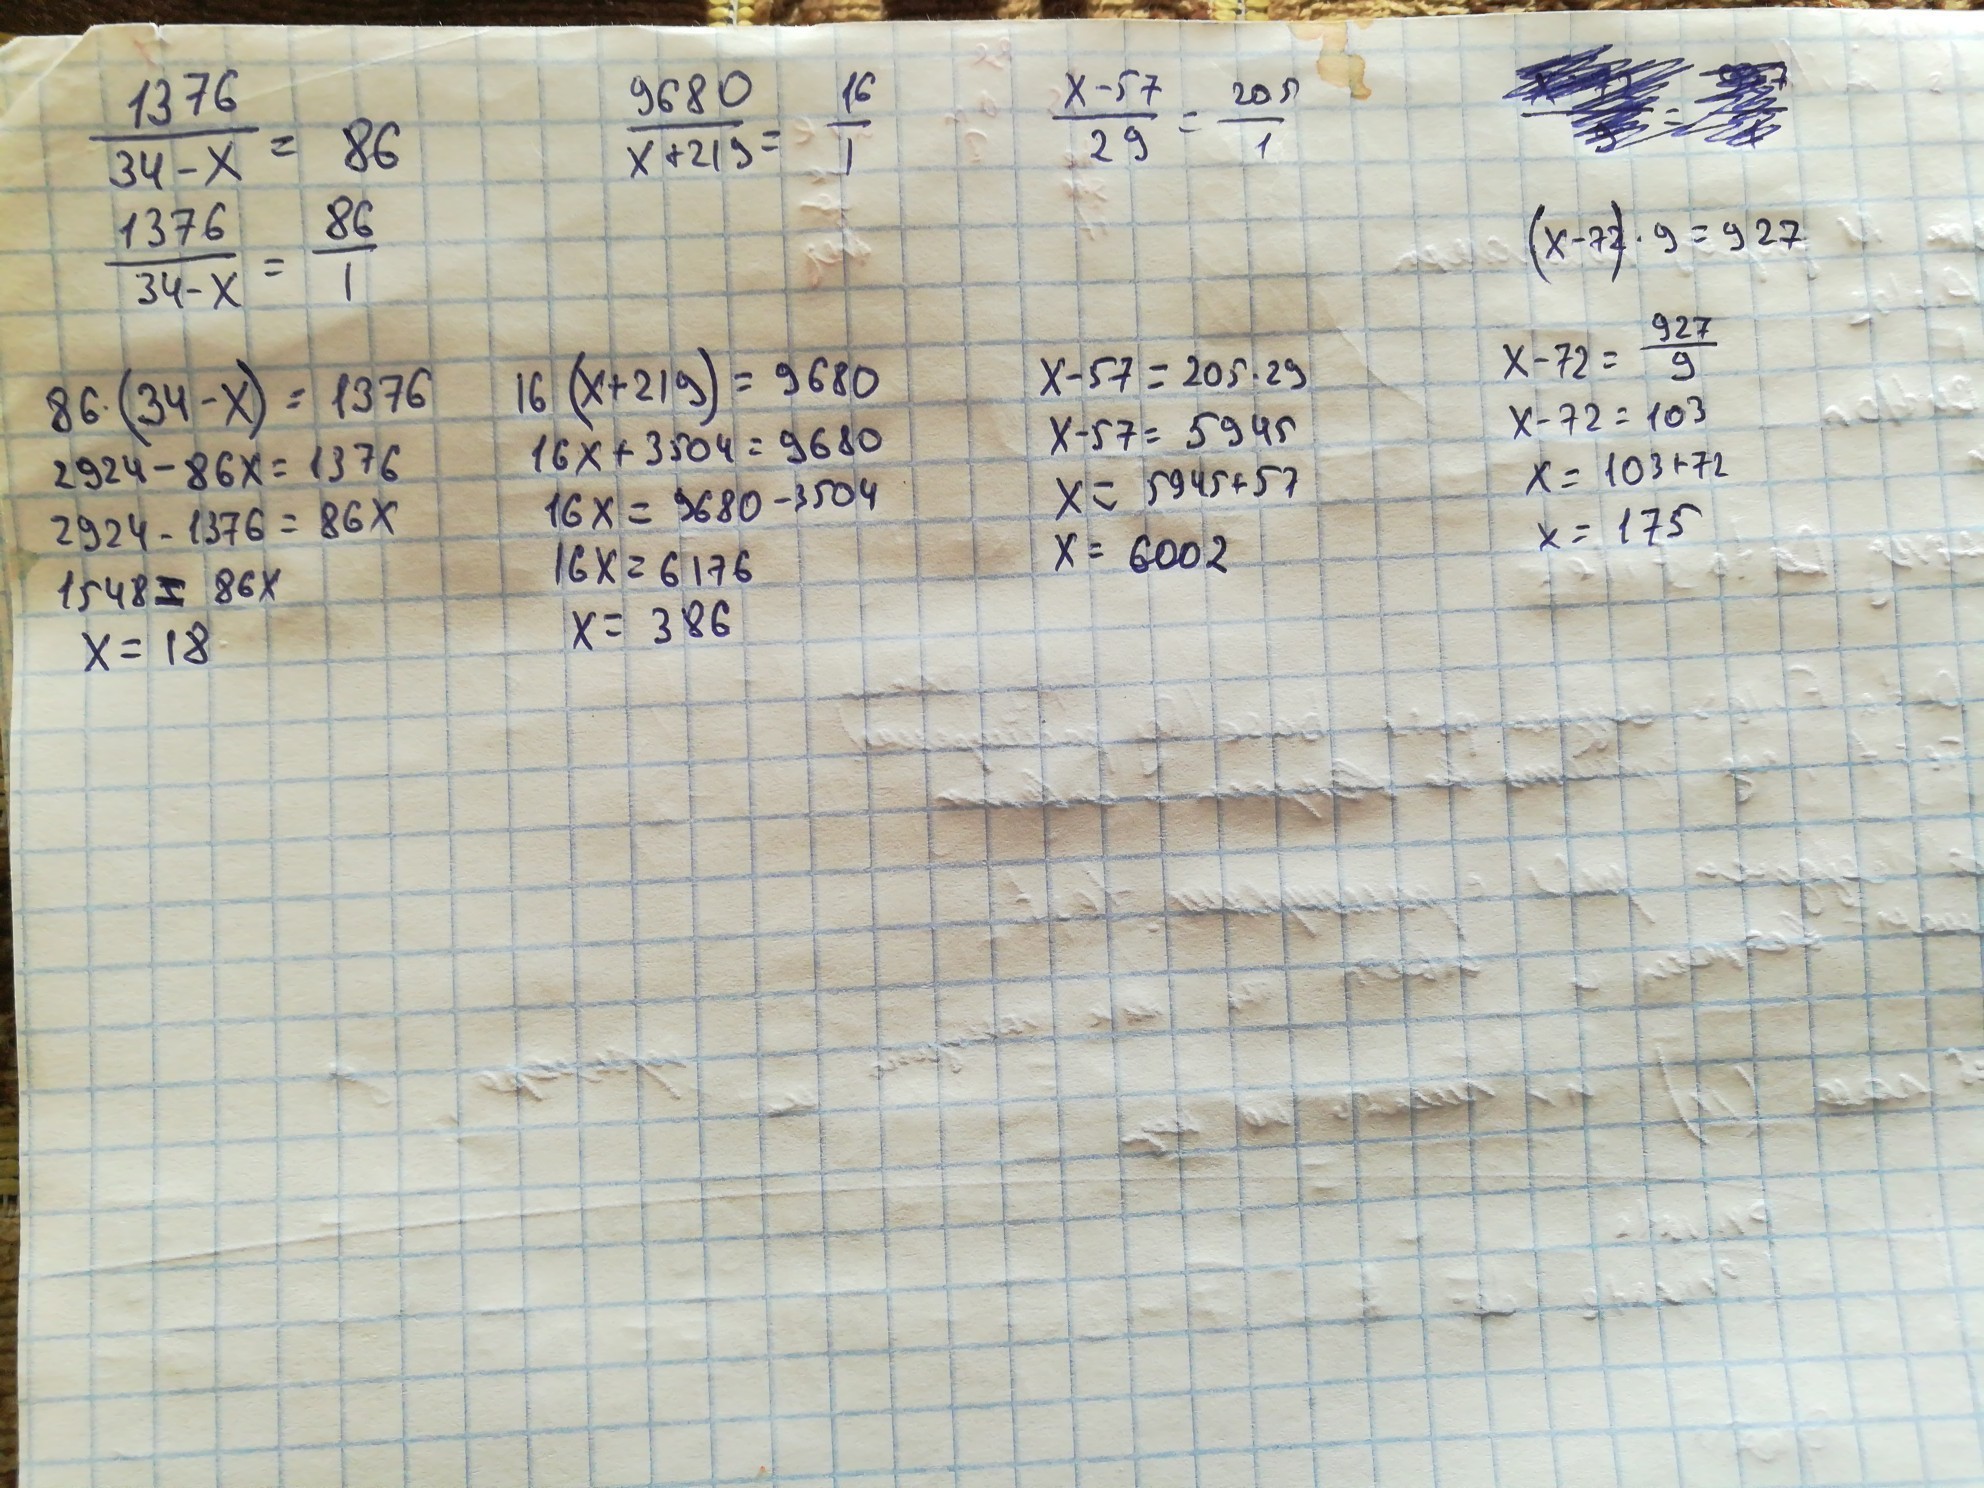 1376
34-x = 86
1376 86
34-x = 1
86·(34-x) = 1376
2924-86x=1376
2924-1376=86x
1548=86x
x=18
9680 16
x+219= 1
16(x+219)=9680
16x+3504=9680
16x=9680-3504
16x=6176
x=386
x-57 205
29 = 1
x-57=205·29
x-57=5945
x=5945+57
x=6002
(x-72)·9=927
927
x-72= 9
x-72=103
x=103+72
x=175